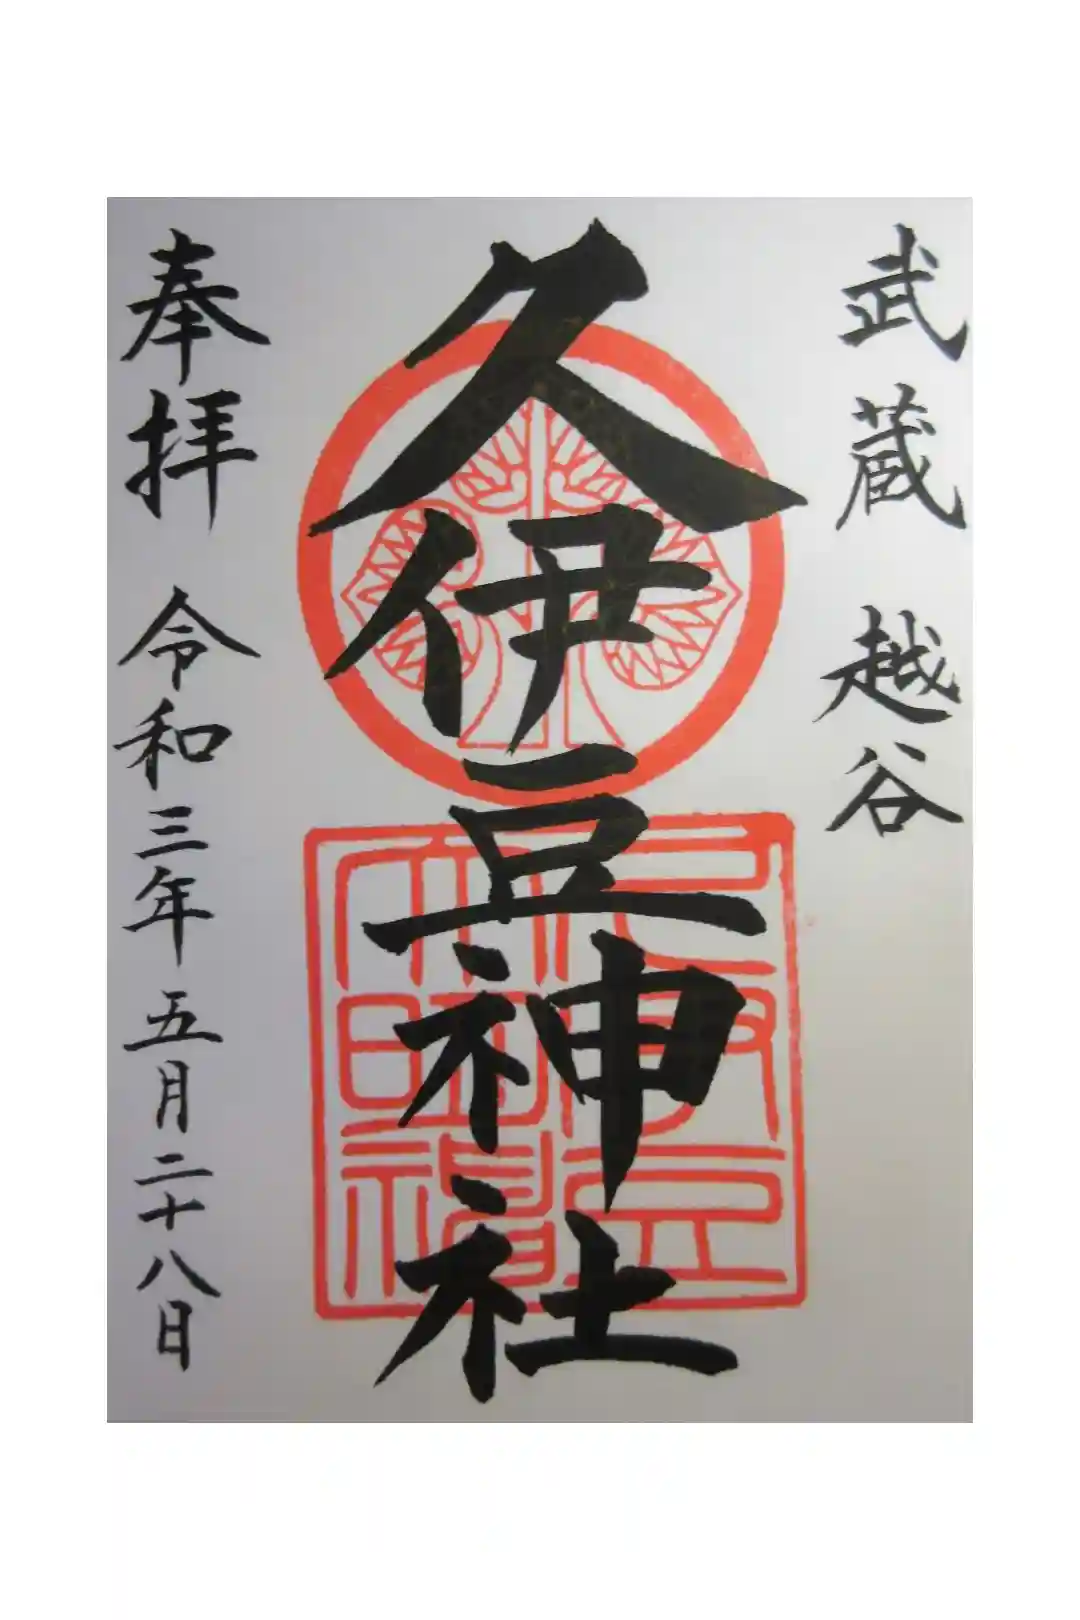 武蔵 越谷
久伊豆神社
奉拝 令和三年五月二十八日